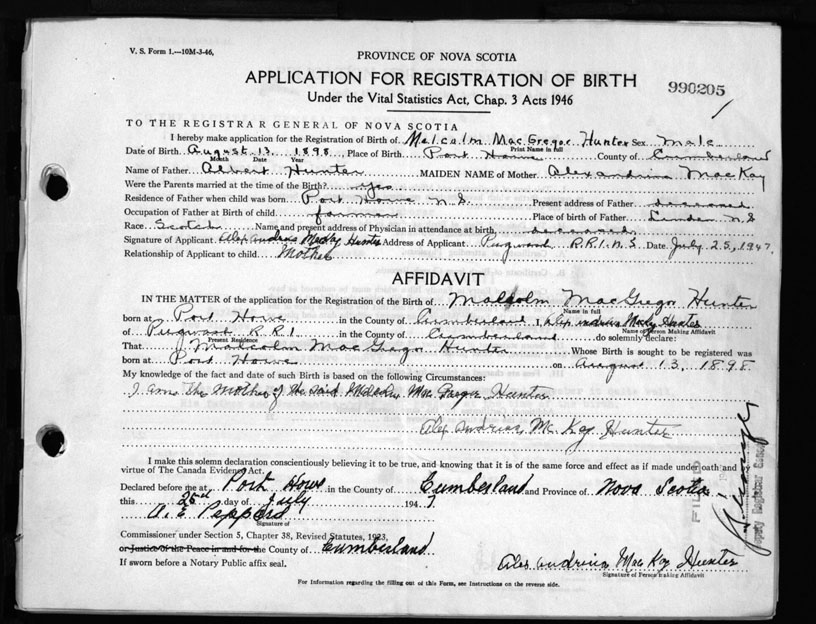 V. S. Form 1.—10M-3-46,
PROVINCE OF NOVA SCOTIA
APPLICATION FOR REGISTRATION OF BIRTH
990205
Under the Vital Statistics Act, Chap. 3 Acts 1946
TO THE REGISTRAR GENERAL OF NOVA SCOTIA
I hereby make application for the Registration of Birth of Malcolm MacGregor Hunter Sex Male
Print Name in full
Date of Birth August 13 1898 Place of Birth Port Howe County of Cumberland
Month Date Year
Name of Father Albert Hunter MAIDEN NAME of Mother Alexandrina MacKay
Were the Parents married at the time of the Birth? yes
Residence of Father when child was born Port Howe N.S. Present address of Father deceased
Occupation of Father at Birth of child farmer Place of birth of Father Linden N.S
Race Scotch Name and present address of Physician in attendance at birth, deceased
Signature of Applicant Alex andrina MacKay Hunter Address of Applicant Pugwash R.R.1. N.S. Date July 25, 1947.
Relationship of Applicant to child. Mother
AFFIDAVIT
IN THE MATTER of the application for the Registration of the Birth of Malcolm MacGregor Hunter
Name in full
born at Port Howe in the County of Cumberland I, Alex andrina McKay Hunter
Name of Person Making Affidavit
of Pugwash R.R.1 in the County of Cumberland do solemnly declare:
Present Residence
That Malcolm MacGrego Hunter Whose Birth is sought to be registered was
born at Port Howe on August 13, 1898
My knowledge of the fact and date of such Birth is based on the following Circumstances:
I am the mother of the said Mac Gregor Hunter
Alex andrina Mc Kay Hunter
I make this solemn declaration conscientiously believing it to be true, and knowing that it is of the same force and effect as if made under oath and
virtue of The Canada Evidence Act.
Declared before me at Port Howe in the County of Cumberland and Province of Nova Scotia
this 25th day of July 1947
A. E Peppard
Signature of
Commissioner under Section 5, Chapter 38, Revised Statutes, 1923,
or Justice of the Peace in and for the County of Cumberland
If sworn before a Notary Public affix seal.
Alex andrina MacKay Hunter
Signature of Person Making Affidavit
For Information regarding the filling out of this Form, see Instructions on the reverse side.
FILED
Deputy Registrar